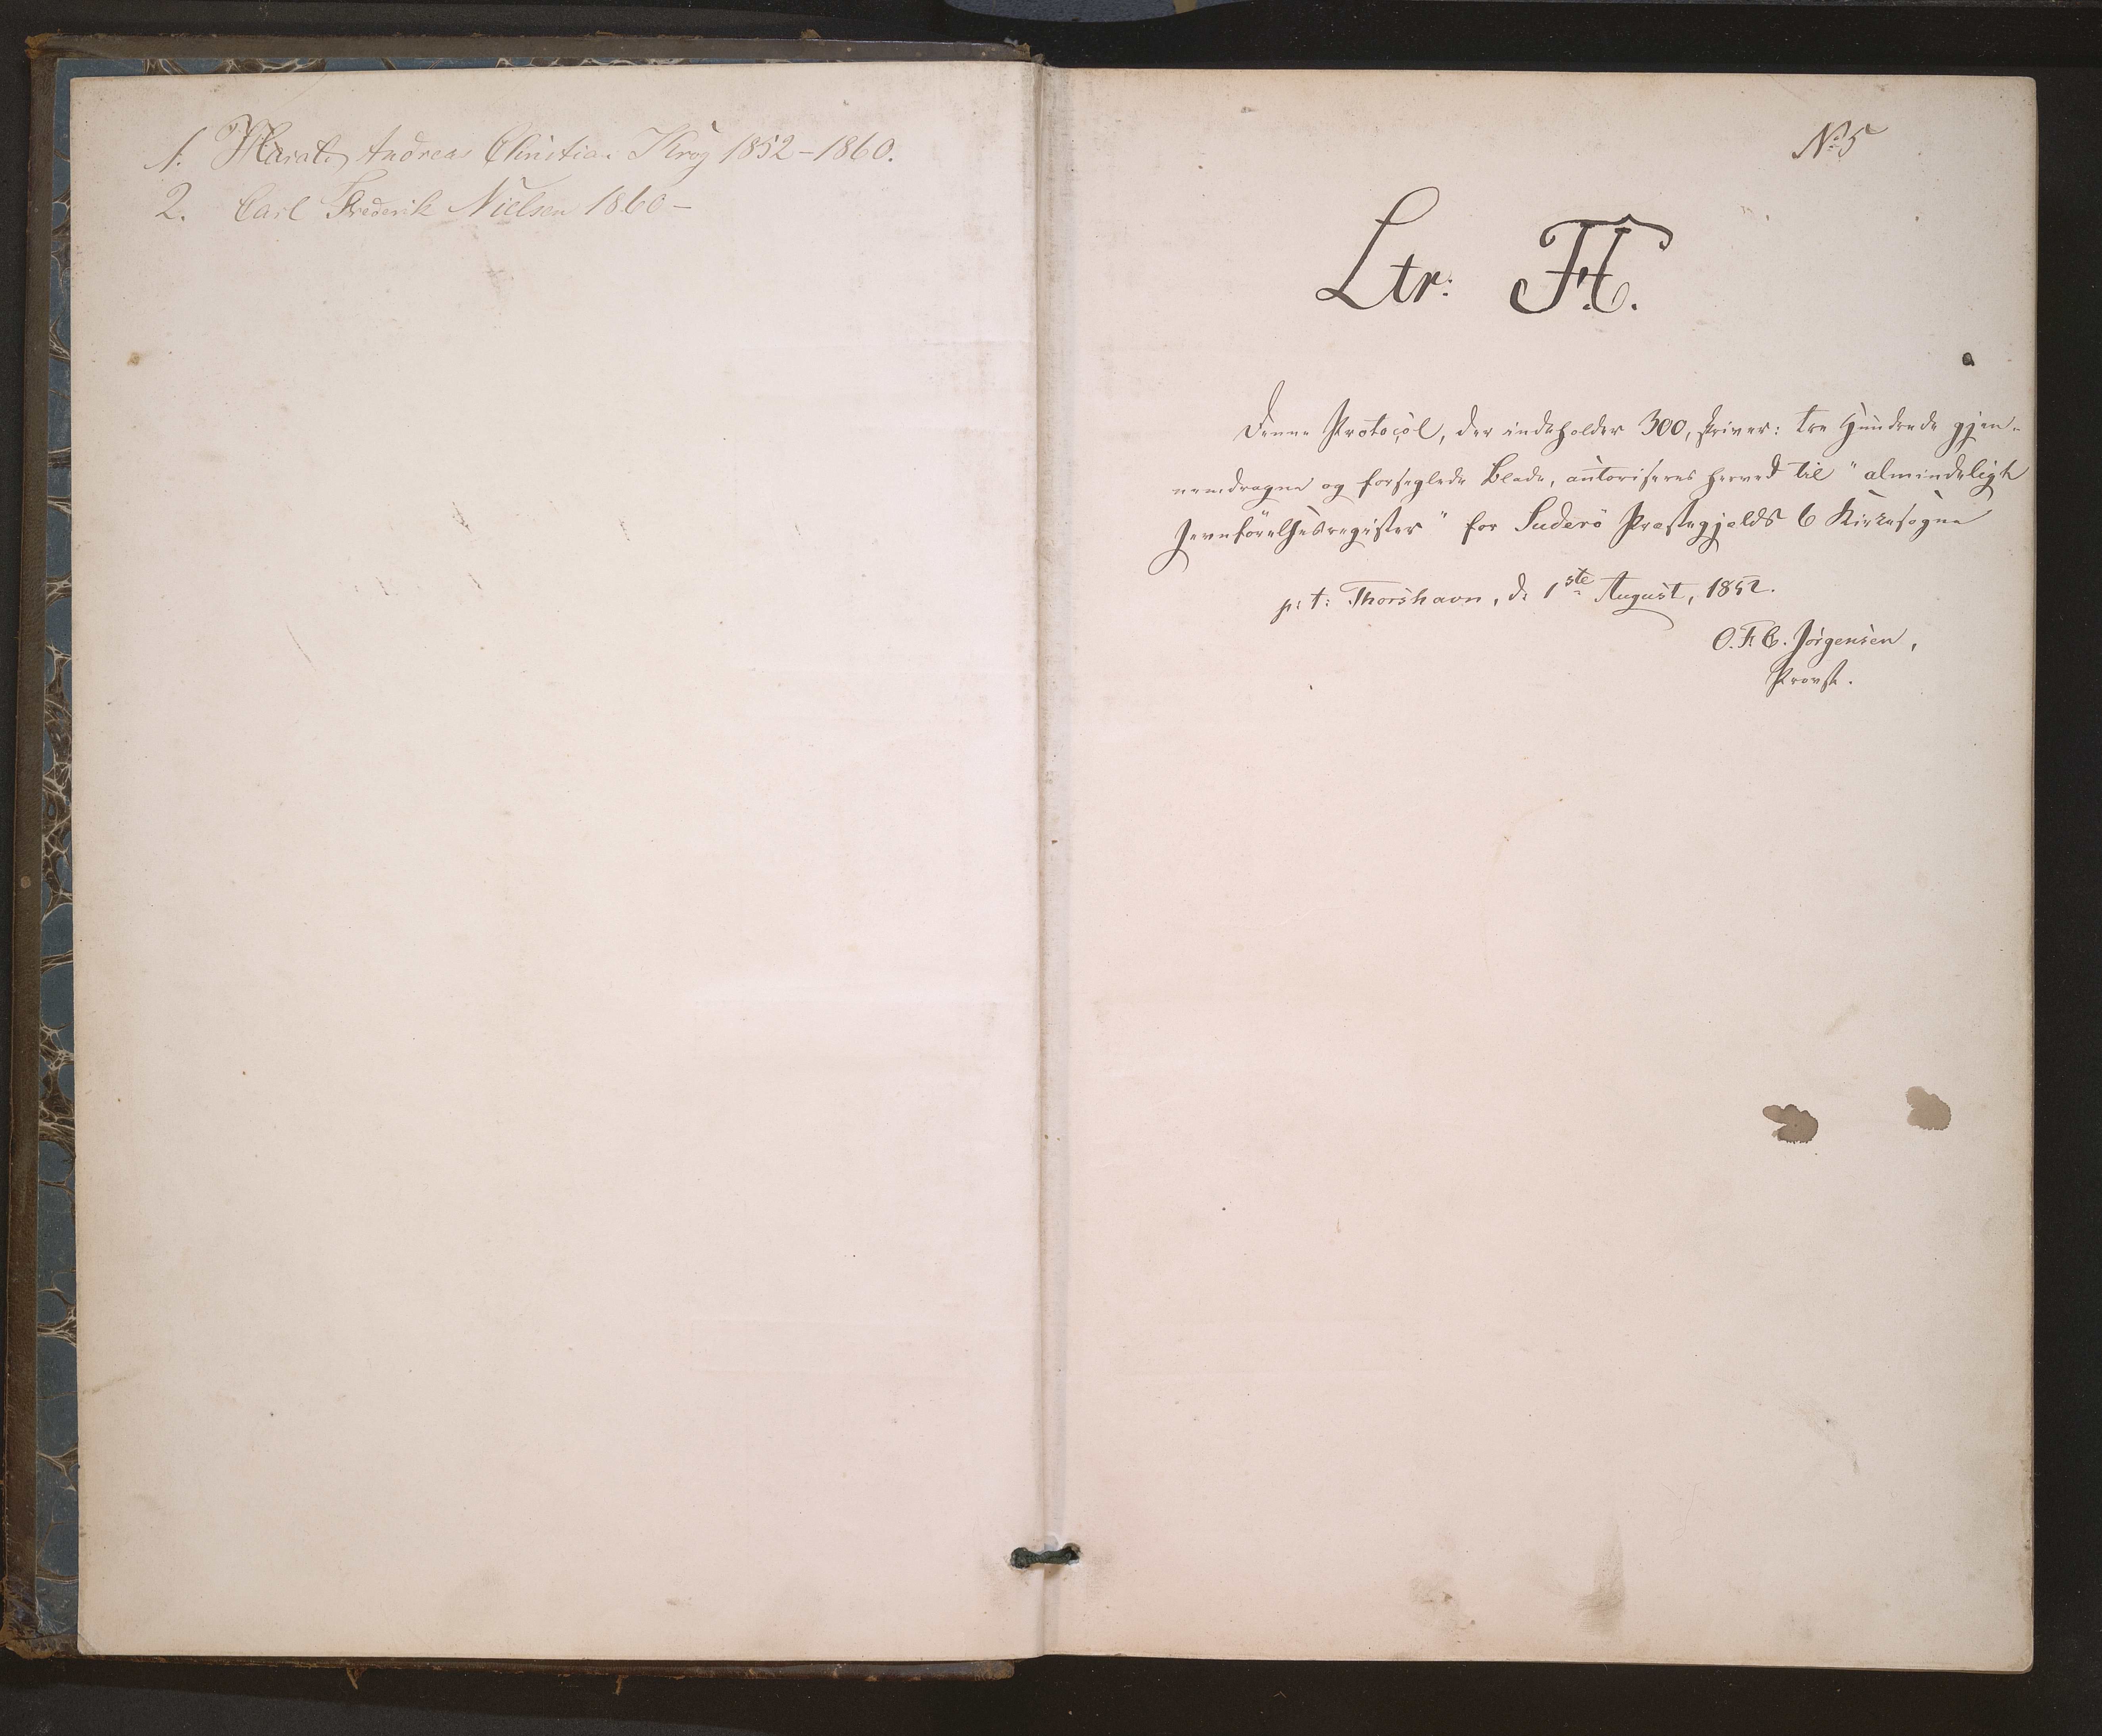 1. Andreas Christian Krog 1852-1860.
2. Carl Frederik Nielsen 1860-
No 5
Ltr:
Denne Protocol, der indeholder 300, skriver: tre Hundrede gjen-
nemdragne og forseglede Blade, autoriseres herved til "almindeligt
Jevnførelsesregister" for Suderö Præstegjelds 6 Kirkesogne
p: t: Thorshavn, d: 1ste August, 1852.
O. F. C. Jørgensen,
Provst.